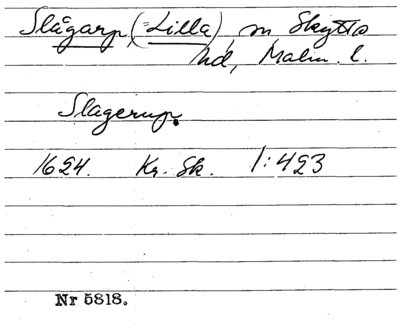 Slågarp, (= Lilla), sn Skytts
hd, Malm. l.
Slagerup.
1624. Kr. Sk. 1:423
Nr 5818.